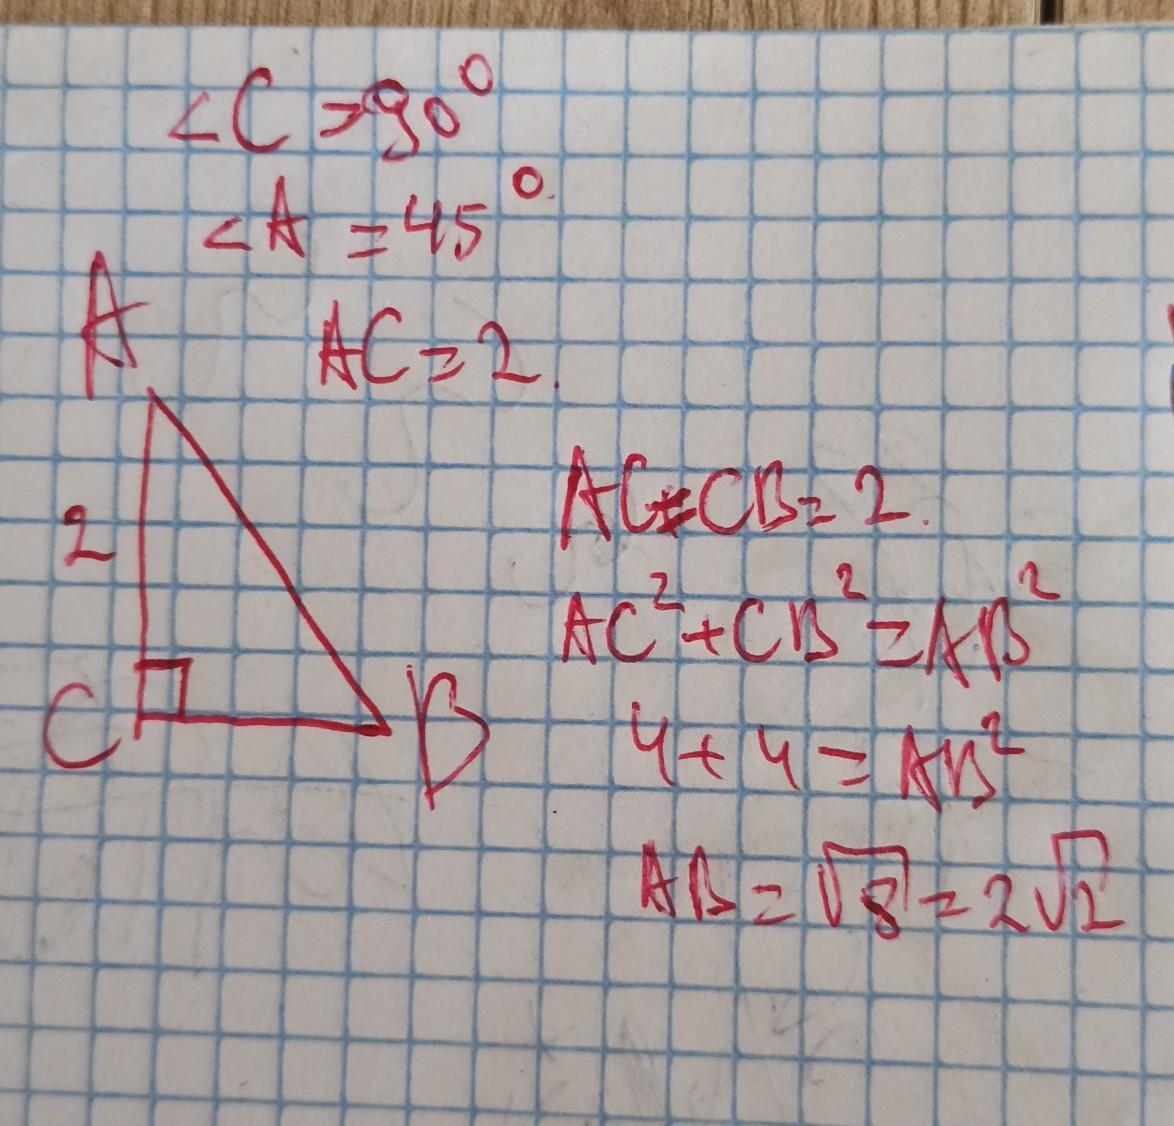 <C =90°
<A = 45°.
A
AC = 2.
2
C
B
AC=CB= 2.
AC²+CB²=AB²
4+4=AB²
AB=√8=2√2